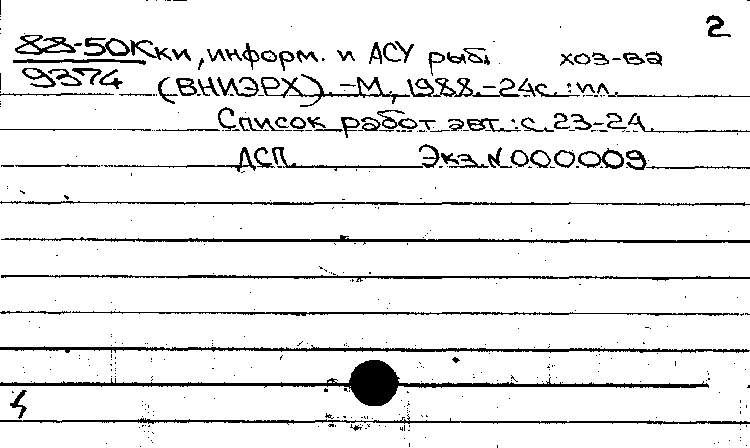 2
88-50К ки, информ. и АСУ рыб. хоз-ва
9374 (ВНИЭРХ). -М., 1988.-24с.: ил.
Список работ авт.: с. 23-24.
ДСП. Экз. N 000009